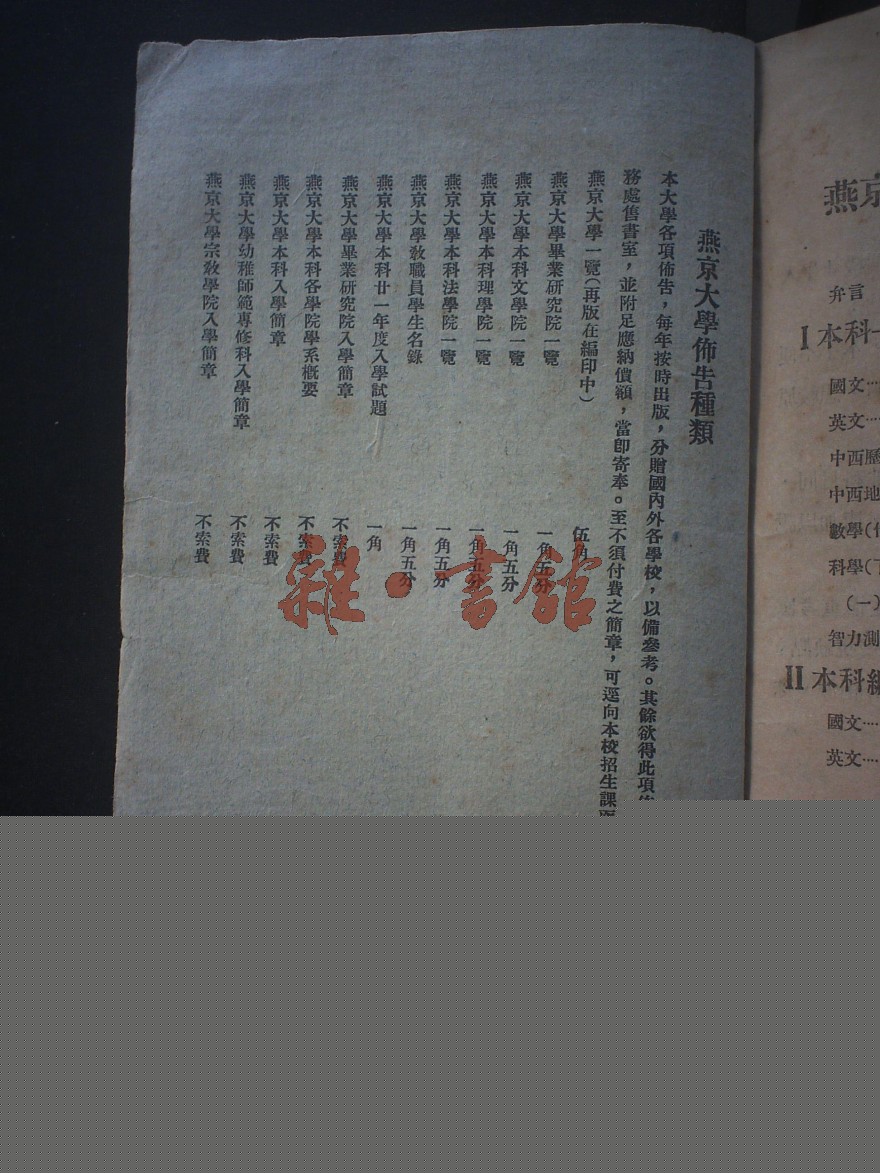 燕京大學佈告種類
本大學各項佈告，每年按時出版，分贈國內外各學校，以備參考。其餘欲得此項
務處售書室，並附足應納價額，當即寄奉。至不須付費之簡章，可逕向本校招生課
燕京大學一覽（再版在編印中） 伍角
燕京大學畢業研究院一覽 一角五分
燕京大學本科文學院一覽 一角五分
燕京大學本科理學院一覽 一角五分
燕京大學本科法學院一覽 一角五分
燕京大學教職員學生名錄 一角五分
燕京大學本科廿一年度入學試題 一角
燕京大學畢業研究院入學簡章 不索費
燕京大學本科各學院學系概要 不索費
燕京大學本科入學簡章 不索費
燕京大學幼稚師範專修科入學簡章 不索費
燕京大學宗教學院入學簡章 不索費
雜·書館
燕京
弁言
I 本科一
國文…
英文…
中西歷
中西地
數學(
科學(
(一)
智力測
II 本科編
國文…
英文…